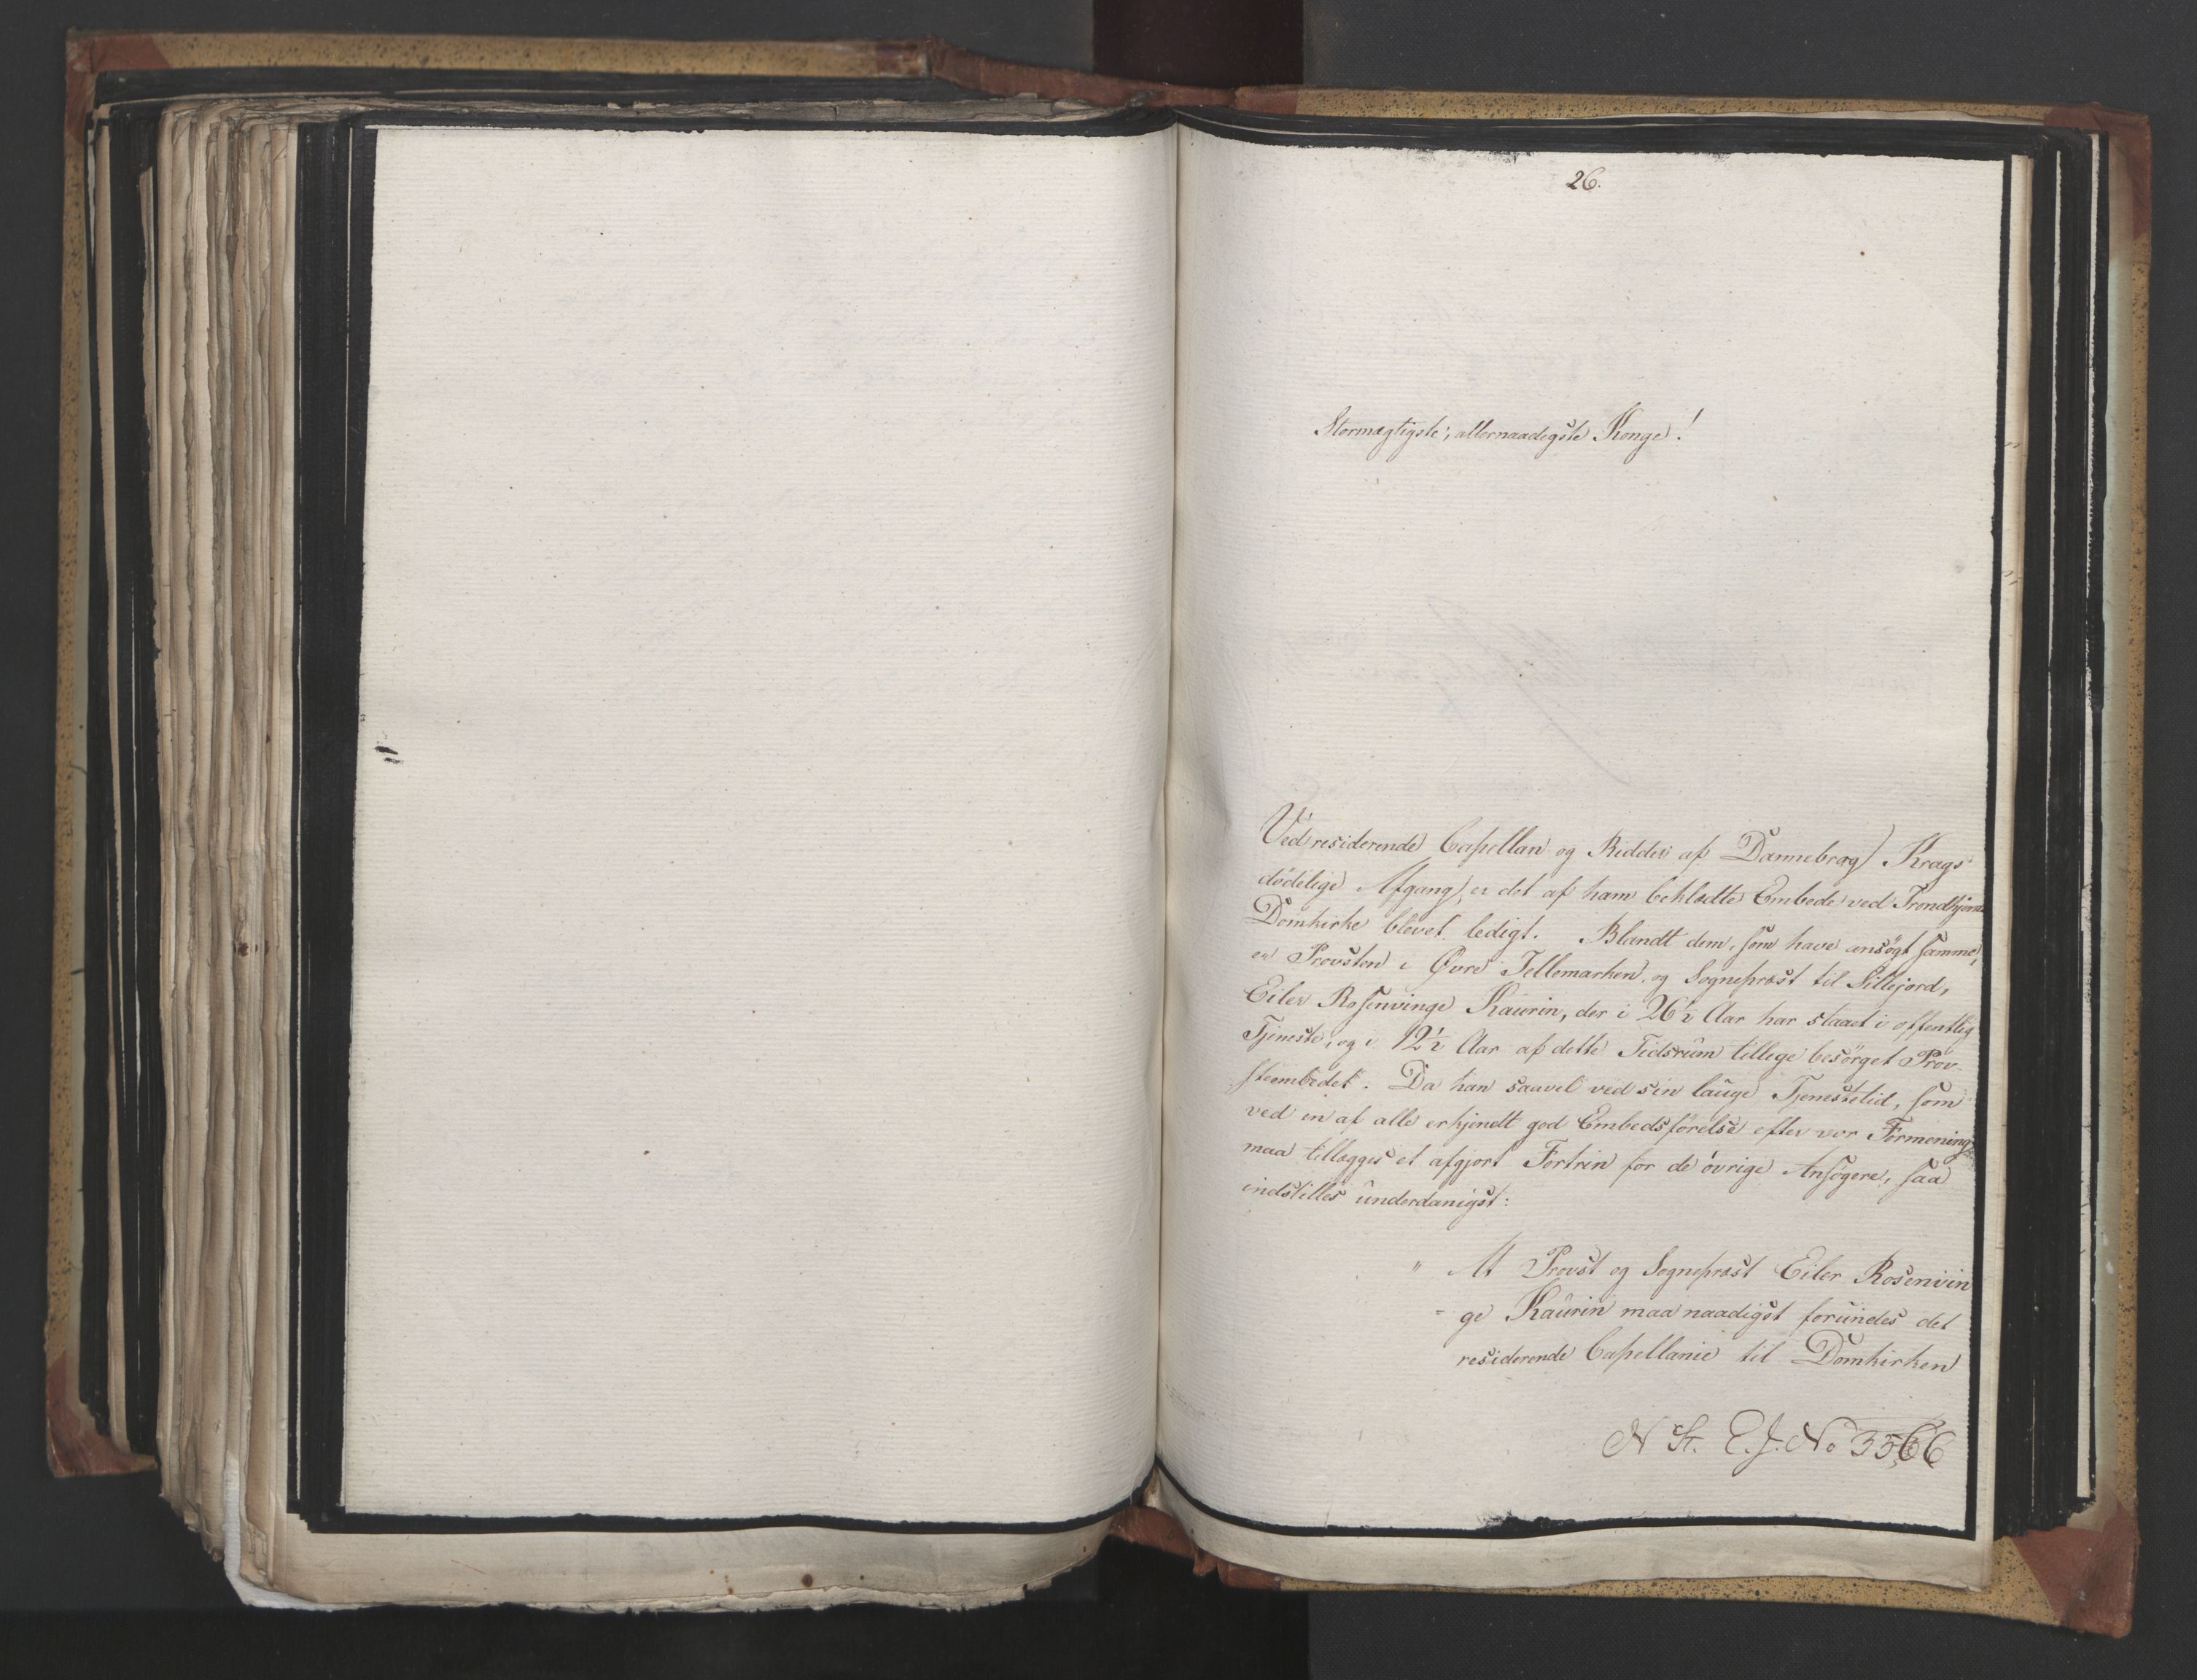 26.
Stormægtigste, allernaadigste Konge!
Ved residerende Capellan og Ridder af Dannebrog Krags
dødelige Afgang, er det af ham beklædte Embede ved Trondhjems
Domkirke blevet ledigt. Blandt dem, som have ansøgt samme,
er Provsten i Øvre Tellemarken, og Sognepræst til Sillejord,
Eiler Rosenvinge Kaurin, der i 26½ Aar har staaet i offentlig
Tjeneste, og i 12½ Aar af dette Tidsrum tillige besørget Prov-
steembedet. Da han saavel ved sin lange Tjenestetid, som
ved en af alle erkjendt god Embedsførelse efter vor Formening
maa tillægges et afgjort Fortrin for de øvrige Ansøgere, saa
indstilles underdanigst:
" At Provst og Sognepræst Eiler Rosenvin
= ge Kaurin maa naadigst forundes det
residerende Capellanie til Domkirken
N St. E. J. No 3566